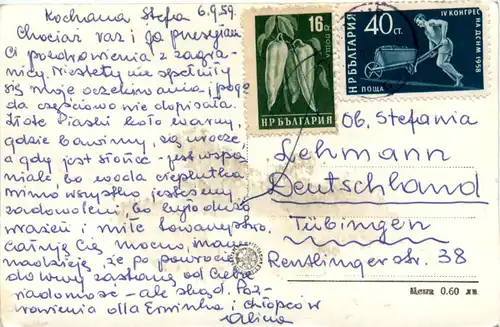 Kochana Stefa 6.9.59.
Chociaż raz i ja przesyłam
Ci pozdrowienia z zagra-
nicy. Niestety nie spełniły
się moje oczekiwania, pogo
da częściowo nie dopisała.
Złote Piaski koło Warny,
gdzie bawimy, są urocze
a gdy jest słońce - jest wspa
niale, bo woda cieplutka
mimo wszystko jesteśmy
zadowoleni, bo było dużo
wrażeń i miłe towarzystwo.
Całuję Cię mocno, mam
nadzieję, że po powrocie
do Warny zastanę od Ciebie
wiadomość - ale skąd. Poz-
drowienia dla Erwinka i chłopców
Alina
16 СТ.
ПОЩА
НР БЪЛГАРИЯ
40 СТ.
IV КОНГРЕС
НА ДСНМ. 1958
НР БЪЛГАРИЯ
ПОЩА
Ob. Stefania
Lehmann
Deutschland
Tübingen
Reutlingerstr. 38
Цена 0.60 лв.